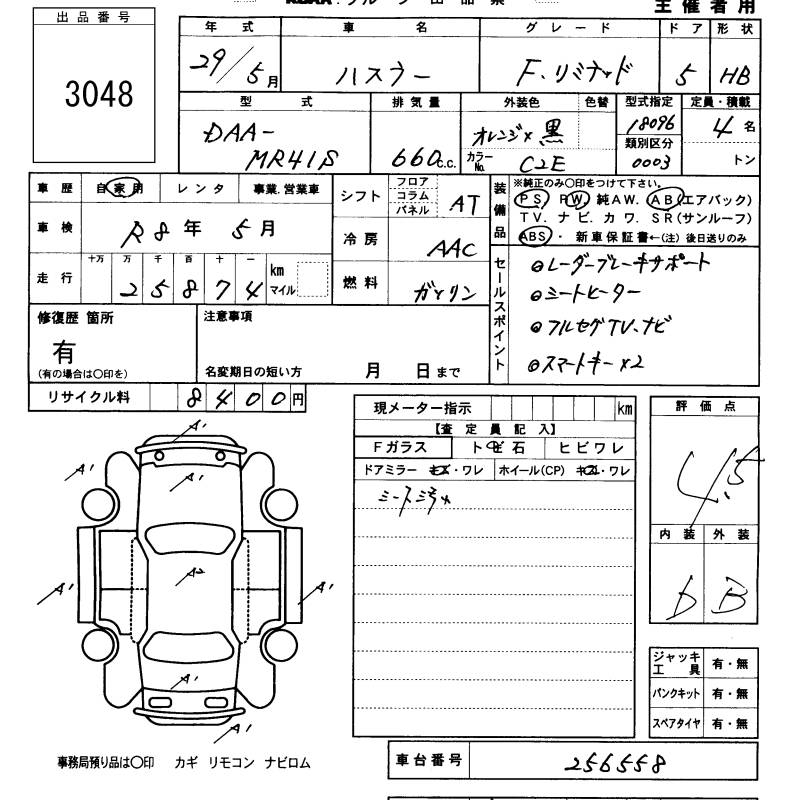 出品番号
3048
主催者用
年式 車名 グレード ドア 形状
29/5月 ハスラー F.リミテッド 5 HB
型式 排気量 外装色 色替 型式指定 定員・積載
DAA-
MR41S 660c.c. オレンジ×黒 18096 4名
カラーNo. C2E 類別区分 0003 トン
車歴 自家用 レンタ 事業.営業車
シフト フロア コラム パネル AT
装備品 ※純正のみ〇印をつけて下さい。
PS PW 純AW. AB(エアバック)
TV. ナビ. カワ. SR(サンルーフ)
ABS・ 新車保証書←(注) 後日送りのみ
車検 R8年 5月
冷房 AAC
走行 十万 万 千 百 十 一
25874 km マイル
燃料 ガソリン
セールスポイント
◎レーダーブレーキサポート
◎シートヒーター
◎フルセグTV.ナビ
◎スマートキー×2
修復歴 箇所
有
(有の場合は〇印を)
注意事項
名変期日の短い方 月 日まで
リサイクル料 8400円
現メーター指示 km
【査定員記入】
Fガラス トビ石 ヒビワレ
ドアミラー キズ・ワレ ホイール(CP) キズ・ワレ
評価点
4.5
内装 外装
b B
A'
A'
A'
A2
A'
A'
A'
A'
ジャッキ工具 有・無
パンクキット 有・無
スペアタイヤ 有・無
事務局預り品は〇印 カギ リモコン ナビロム
車台番号 256558